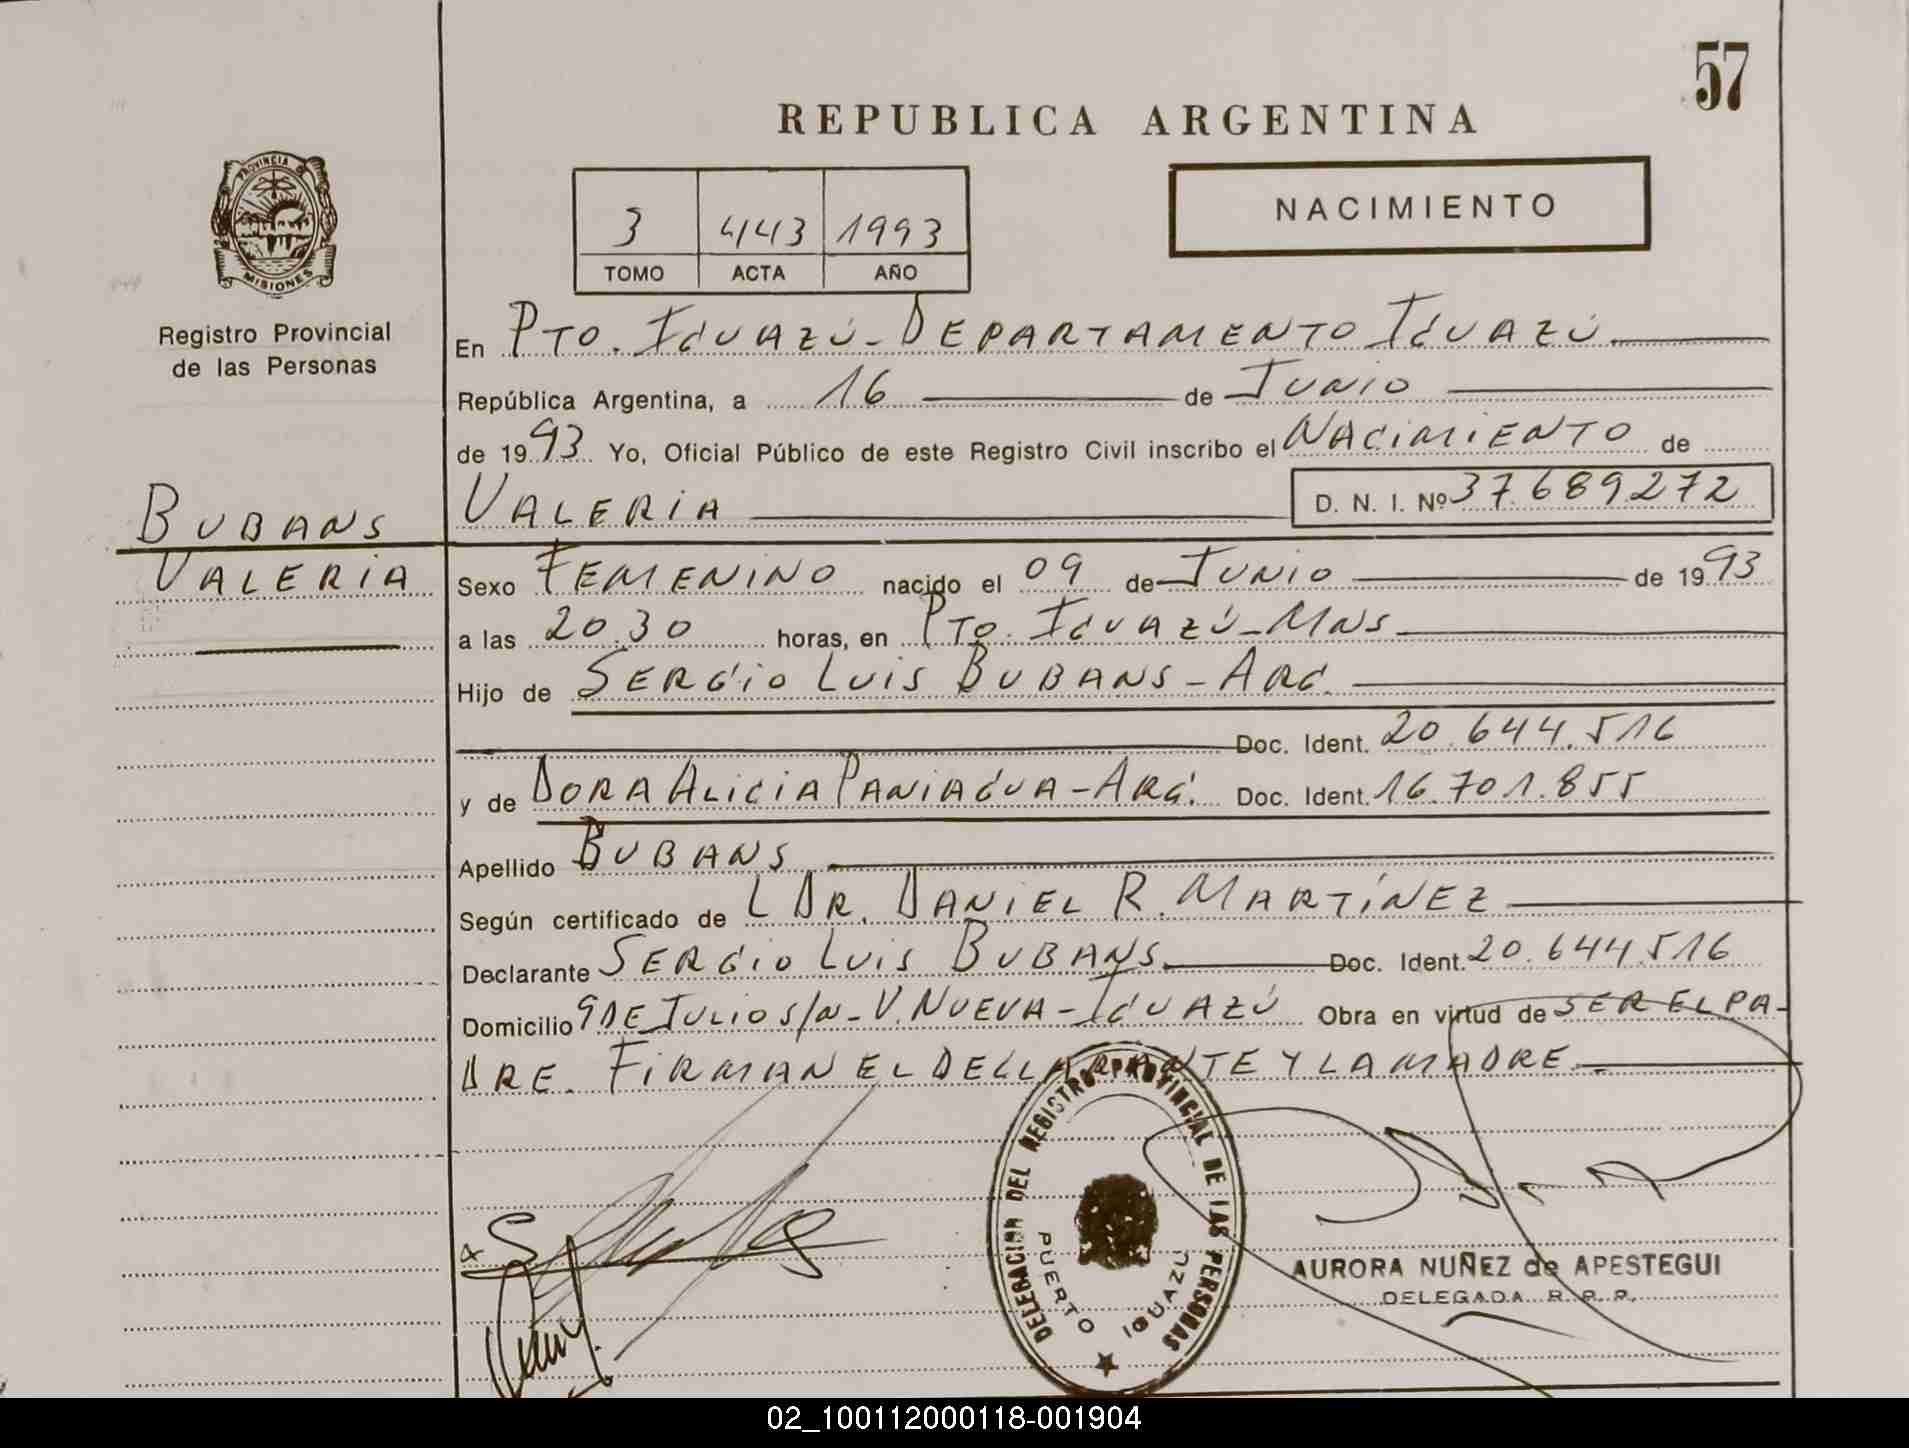 57
REPUBLICA ARGENTINA
PROVINCIA
MISIONES
Registro Provincial
de las Personas
3 443 1993
TOMO ACTA AÑO
NACIMIENTO
En PTO. IGUAZÚ - DEPARTAMENTO IGUAZÚ
República Argentina, a 16 de JUNIO
de 1993 Yo, Oficial Público de este Registro Civil inscribo el NACIMIENTO de
VALERIA D. N. I. Nº 37.689.272
BUBANS
VALERIA
Sexo FEMENINO nacido el 09 de JUNIO de 1993
a las 20.30 horas, en PTO. IGUAZÚ - MNS
Hijo de SERGIO LUIS BUBANS - ARG.
Doc. Ident. 20.644.516
y de DORA ALICIA PANIAGUA - ARG. Doc. Ident. 16.701.855
Apellido BUBANS
Según certificado de L DR. DANIEL R. MARTÍNEZ
Declarante SERGIO LUIS BUBANS Doc. Ident. 20.644.516
Domicilio 9 DE JULIO S/N - V. NUEVA - IGUAZÚ Obra en virtud de SER EL PA-
DRE. FIRMAN EL DECLARANTE Y LA MADRE.
DELEGACION DEL REGISTRO PROVINCIAL DE LAS PERSONAS
PUERTO IGUAZU
AURORA NUÑEZ de APESTEGUI
DELEGADA R. P. P.
02_100112000118-001904